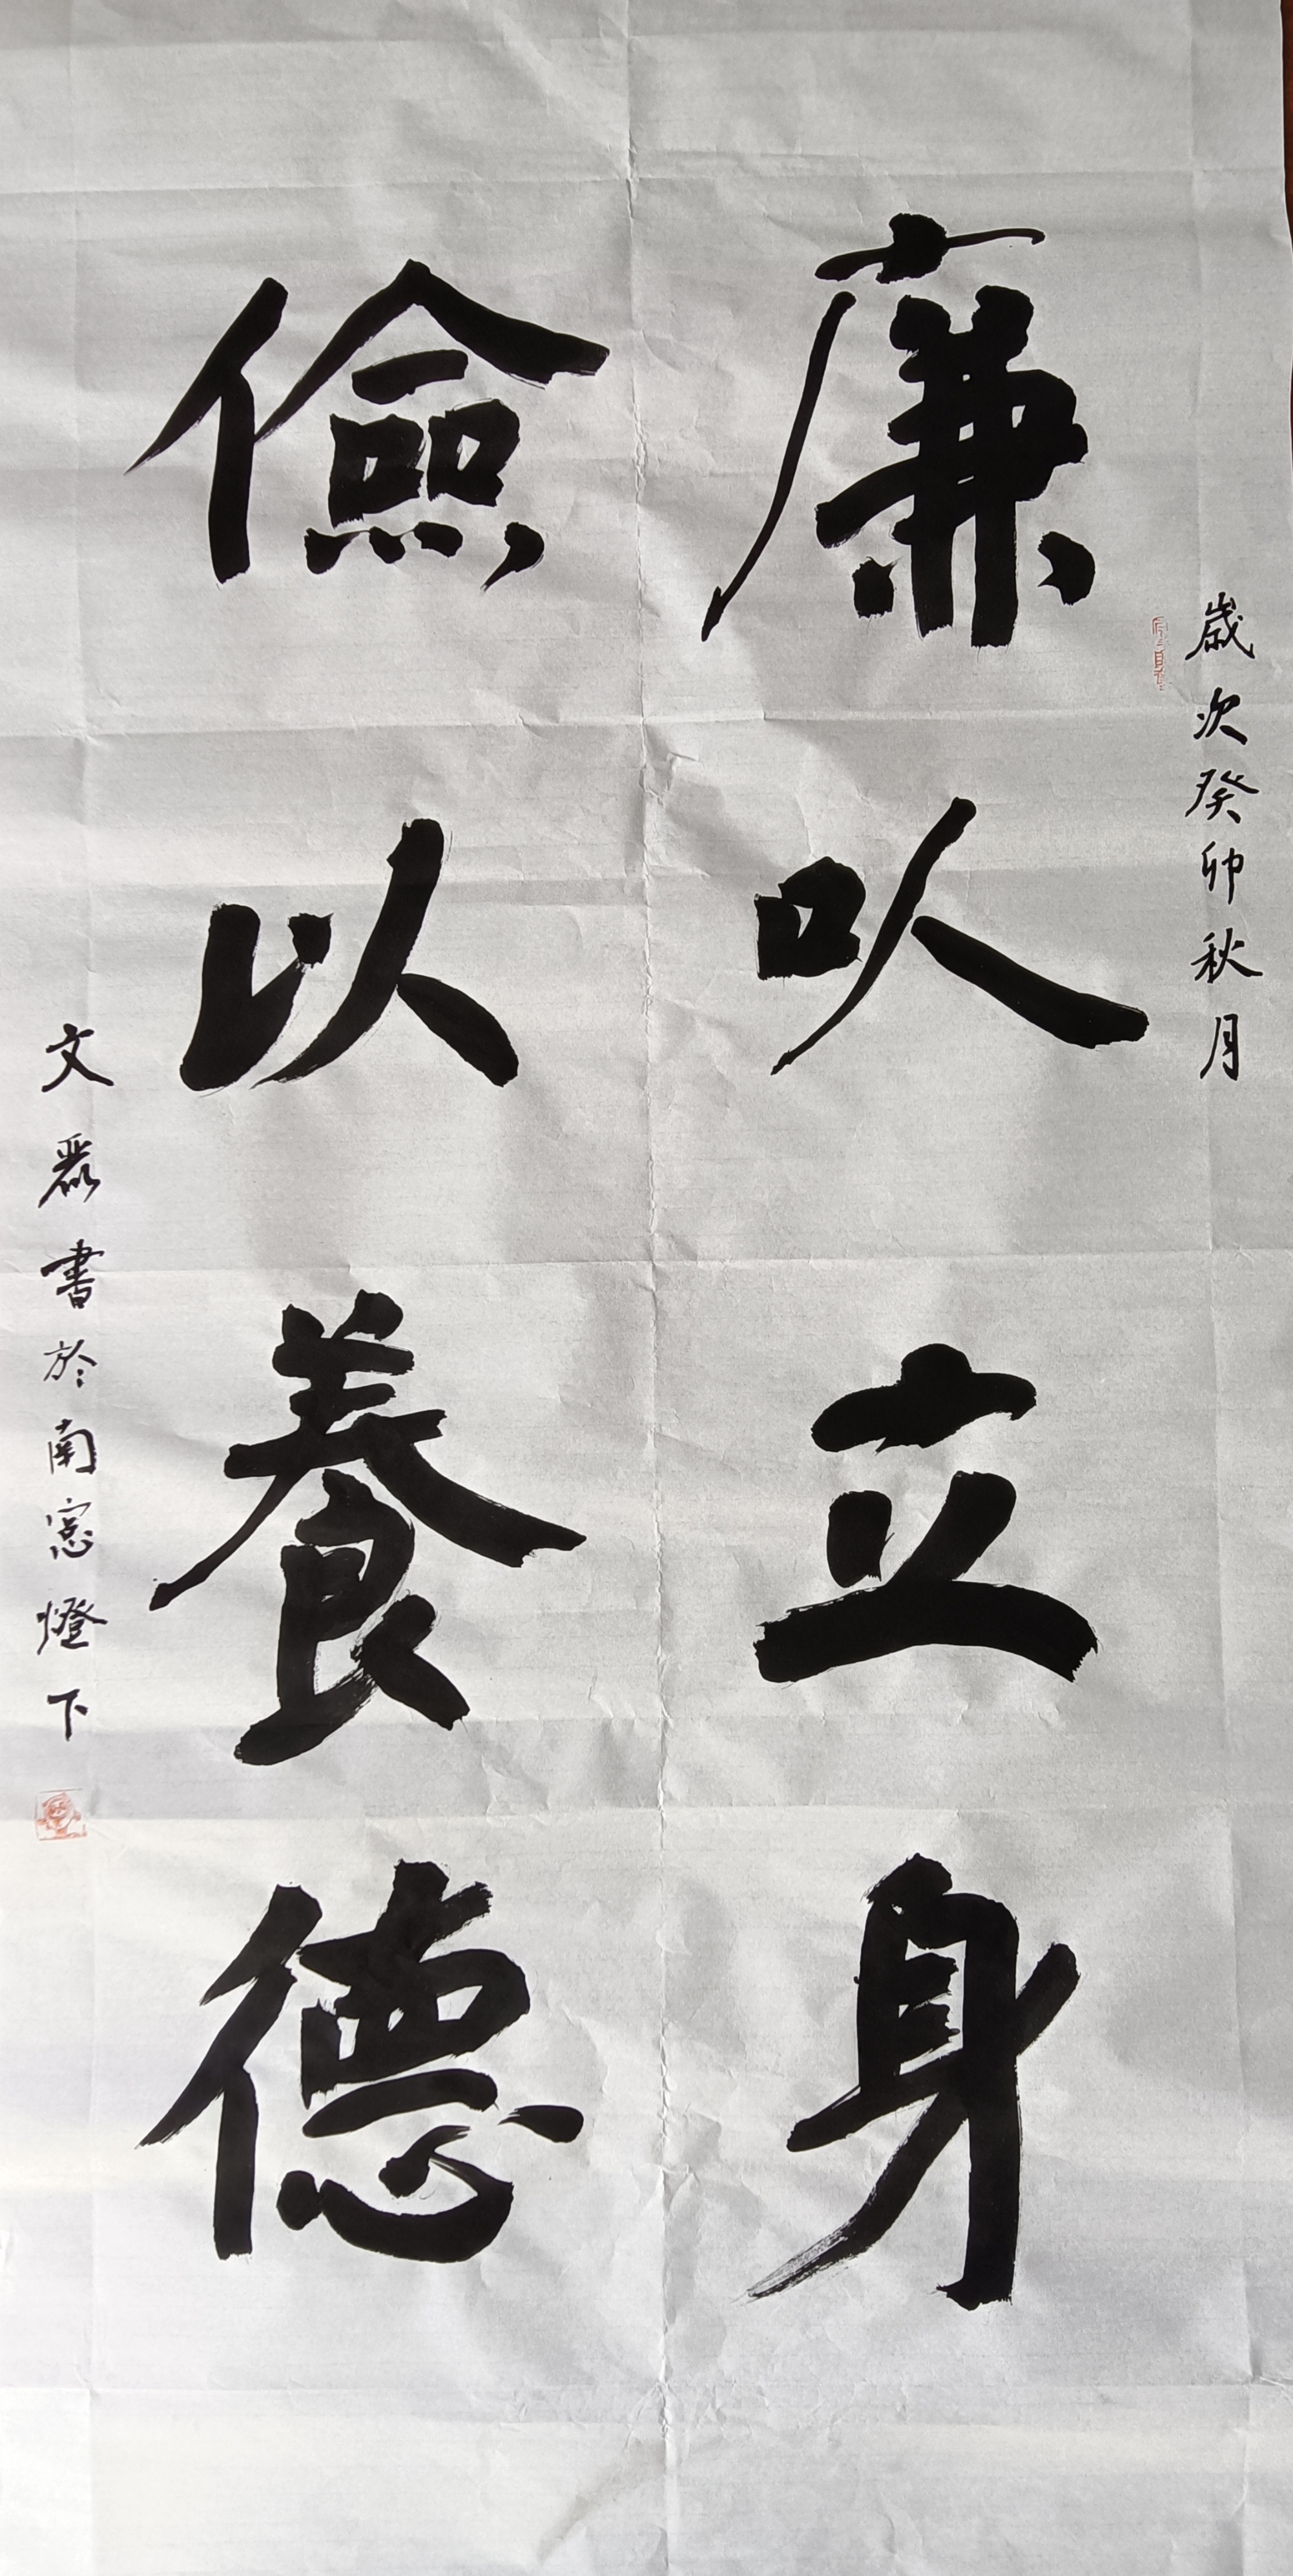 歲次癸卯秋月
廉以立身
儉以養德
文丽書於南窓燈下